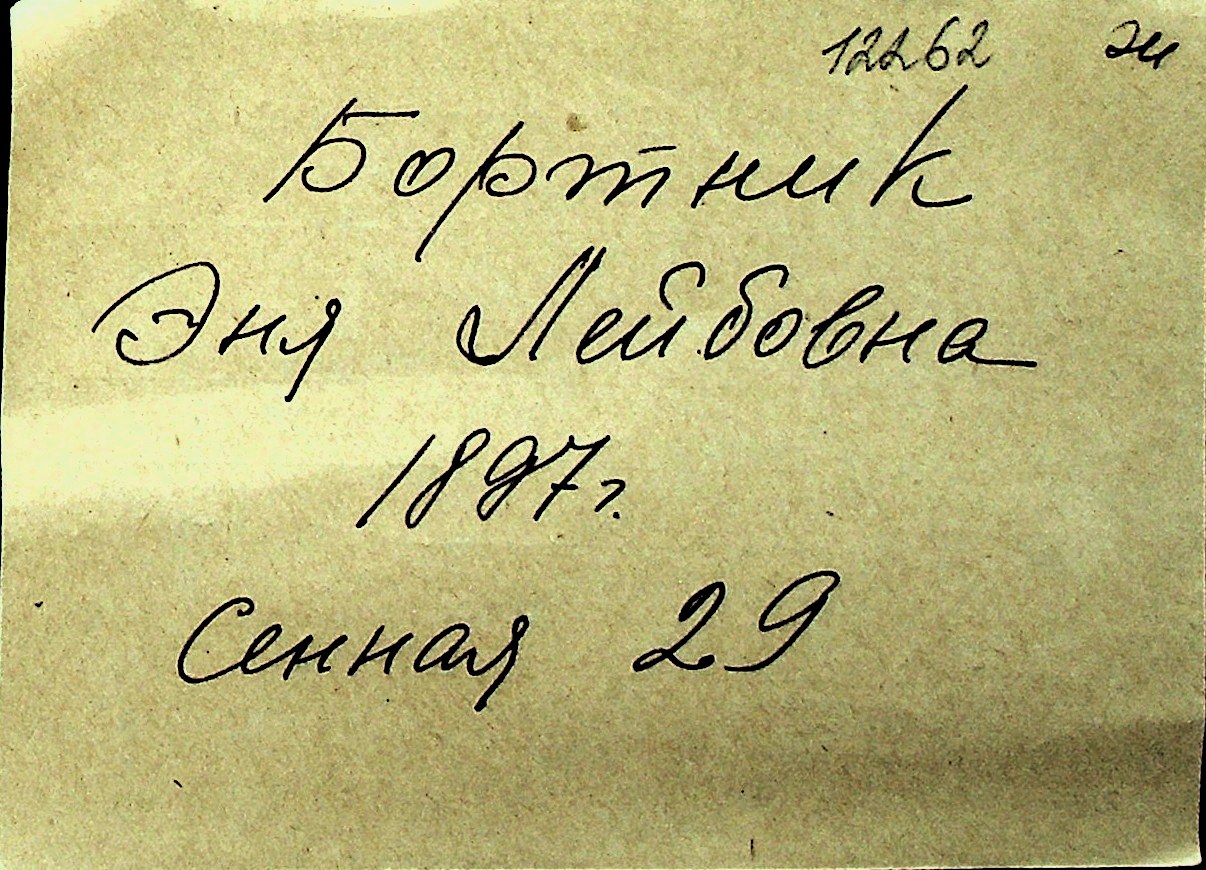 12262
Бортник
Эня Лейбовна
1897 г.
Сенная 29